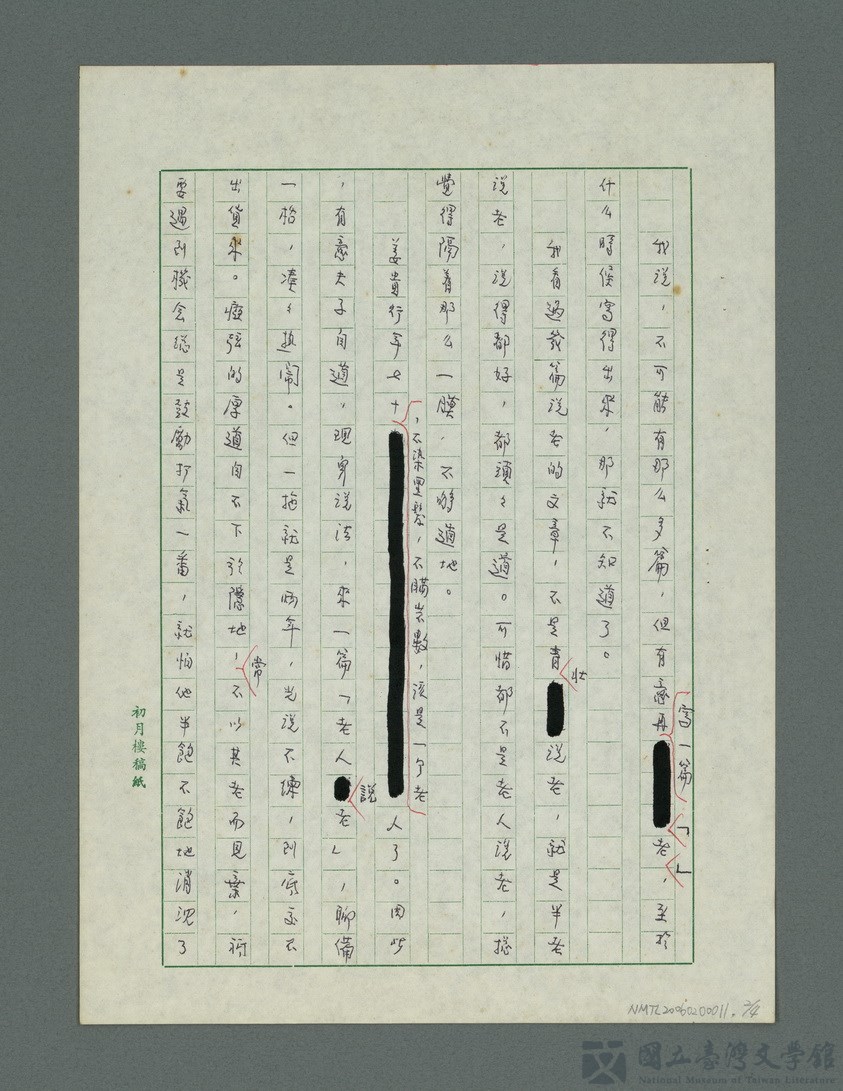 我说，不可能有那么多篇，但有意再寫一篇「老」，至於
什么時候寫得出來，那就不知道了。
我看過幾篇说老的文章，不是青壯说老，就是半老
说老，说得都好，都頭々是道。可惜都不是老人談老，搃
覺得隔着那么一膜，不够道地。
姜貴行年七十，不染黑髮，不瞞岁數，该是一个老人了。因此
，有意夫子自道，現身说法，來一篇「老人說老」，聊備
一格，凑々热闹。但一拖就是两年，光说不練，到底交不
出貨來。瘂弦的厚道自不下於隱地，常不以其老而見棄，祇
要遇到機会總是鼓勵打氣一番，就怕他半飽不飽地消沉了
初月樓稿紙
NMTL20060200011. 2/4
國立臺灣文學館
National Museum of Taiwan Literature